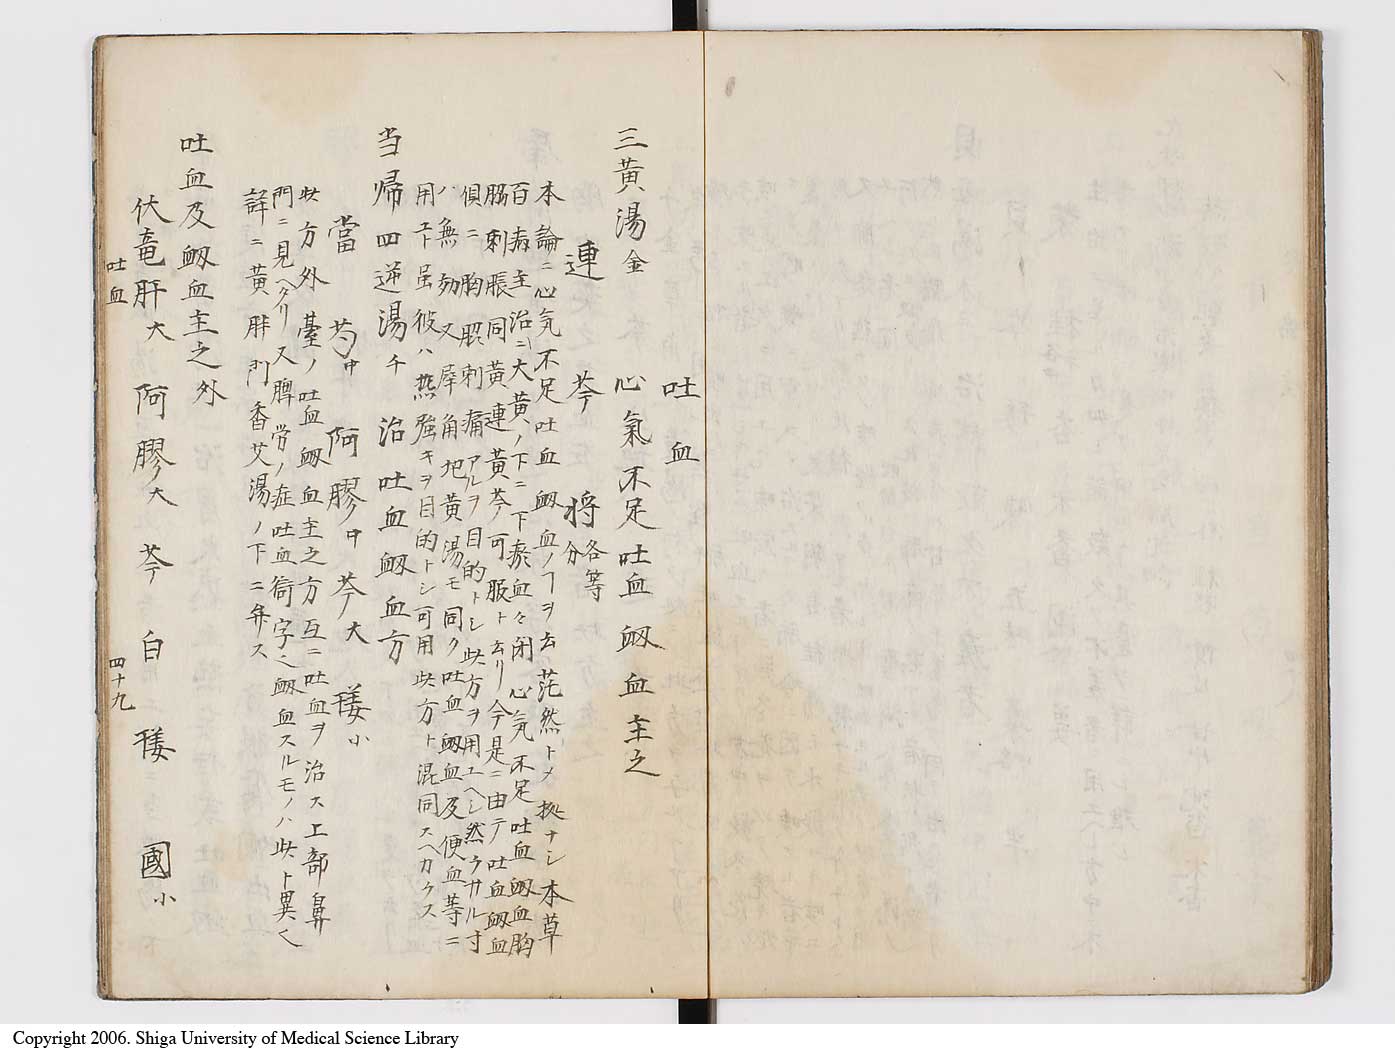 吐血
三黄湯金 心氣不足吐血衂血主之
連 芩 将各等分
本論ニ心気不足吐血衂血ノヿヲ云茫然トメ拠ナシ本草
百病主治ニ大黄ノ下ニ下瘀血々閉心気不足吐血衂血胸
脇刺脹同黄連黄芩ノ可服ト云リ今是ニ由テ吐血衂血
倶ニ胸脇刺痛アルヲ目的トシ此方ヲ用ユヘシ然ラサル寸
ハ無効又犀角地黄湯モ同ク吐血衂血及便血等ニ
用ユト虽彼ハ熱強キヲ目的トシ可用此方ト混同スヘカラス
当帰四逆湯千 治吐血衂血方
當 芍中 阿膠中 芩大 䅽小
此方外臺ノ吐血衂血主之方互ニ吐血ヲ治ス上部鼻
門ニ見ヘタリ又脾労ノ症吐血衂血スルモノハ此ト異也
詳ニ黄胖門香艾湯ノ下ニ弁ス
吐血及衂血主之外
伏竜肝大 阿膠大 芩 白 䅽 國小
吐血
四十九
Copyright 2006. Shiga University of Medical Science Library